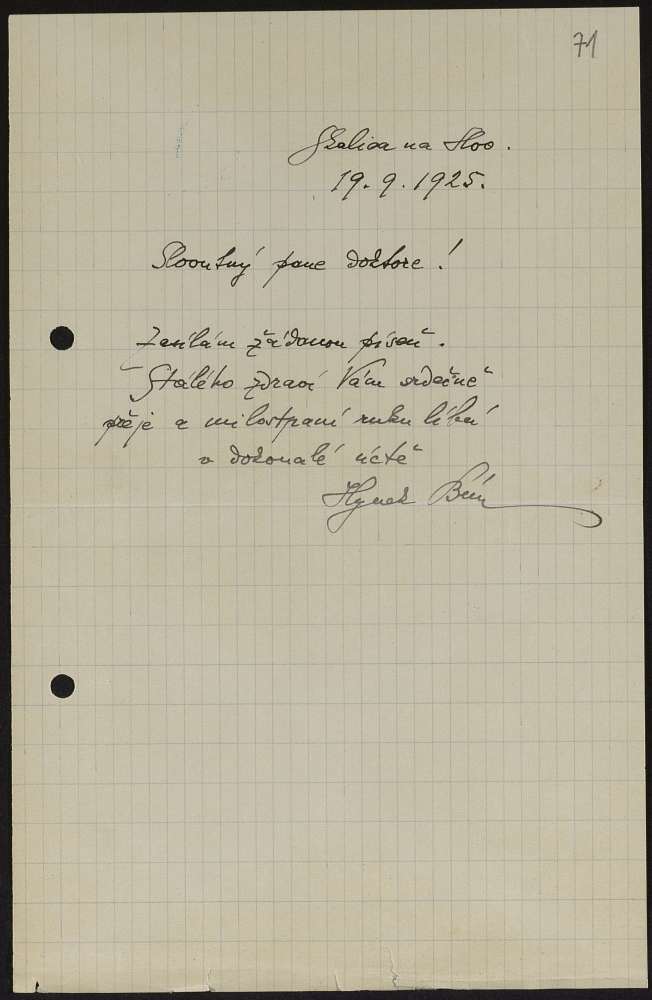 71
Skalica na Slov.
19. 9. 1925.
Slovutný pane doktore!
Zasílám žádanou píseň.
Stálého zdraví Vám srdečně
přeje a milostpaní ruku líbá
v dokonalé úctě
Hynek Bím